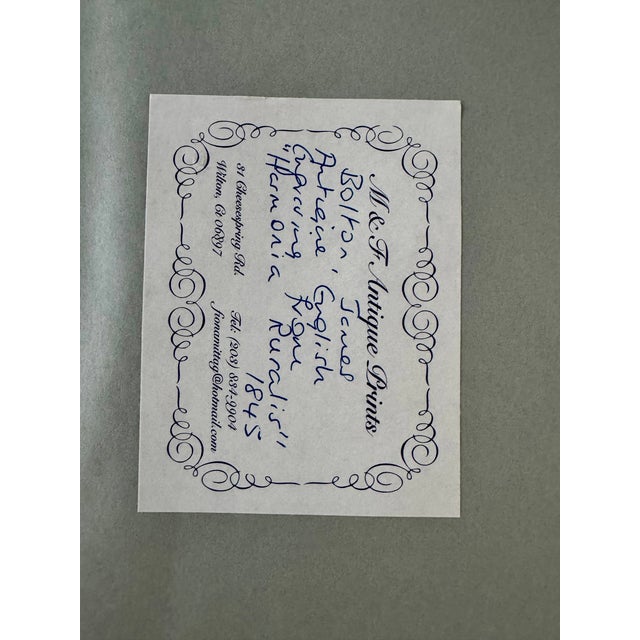 M & F Antique Prints
Bolton, James
Antique English
Engraving from
"Harmonia Ruralis"
1845
31 Cheesespring Rd. Tel: (203) 834-2904
Wilton, Ct 06897 fionamittag@hotmail.com